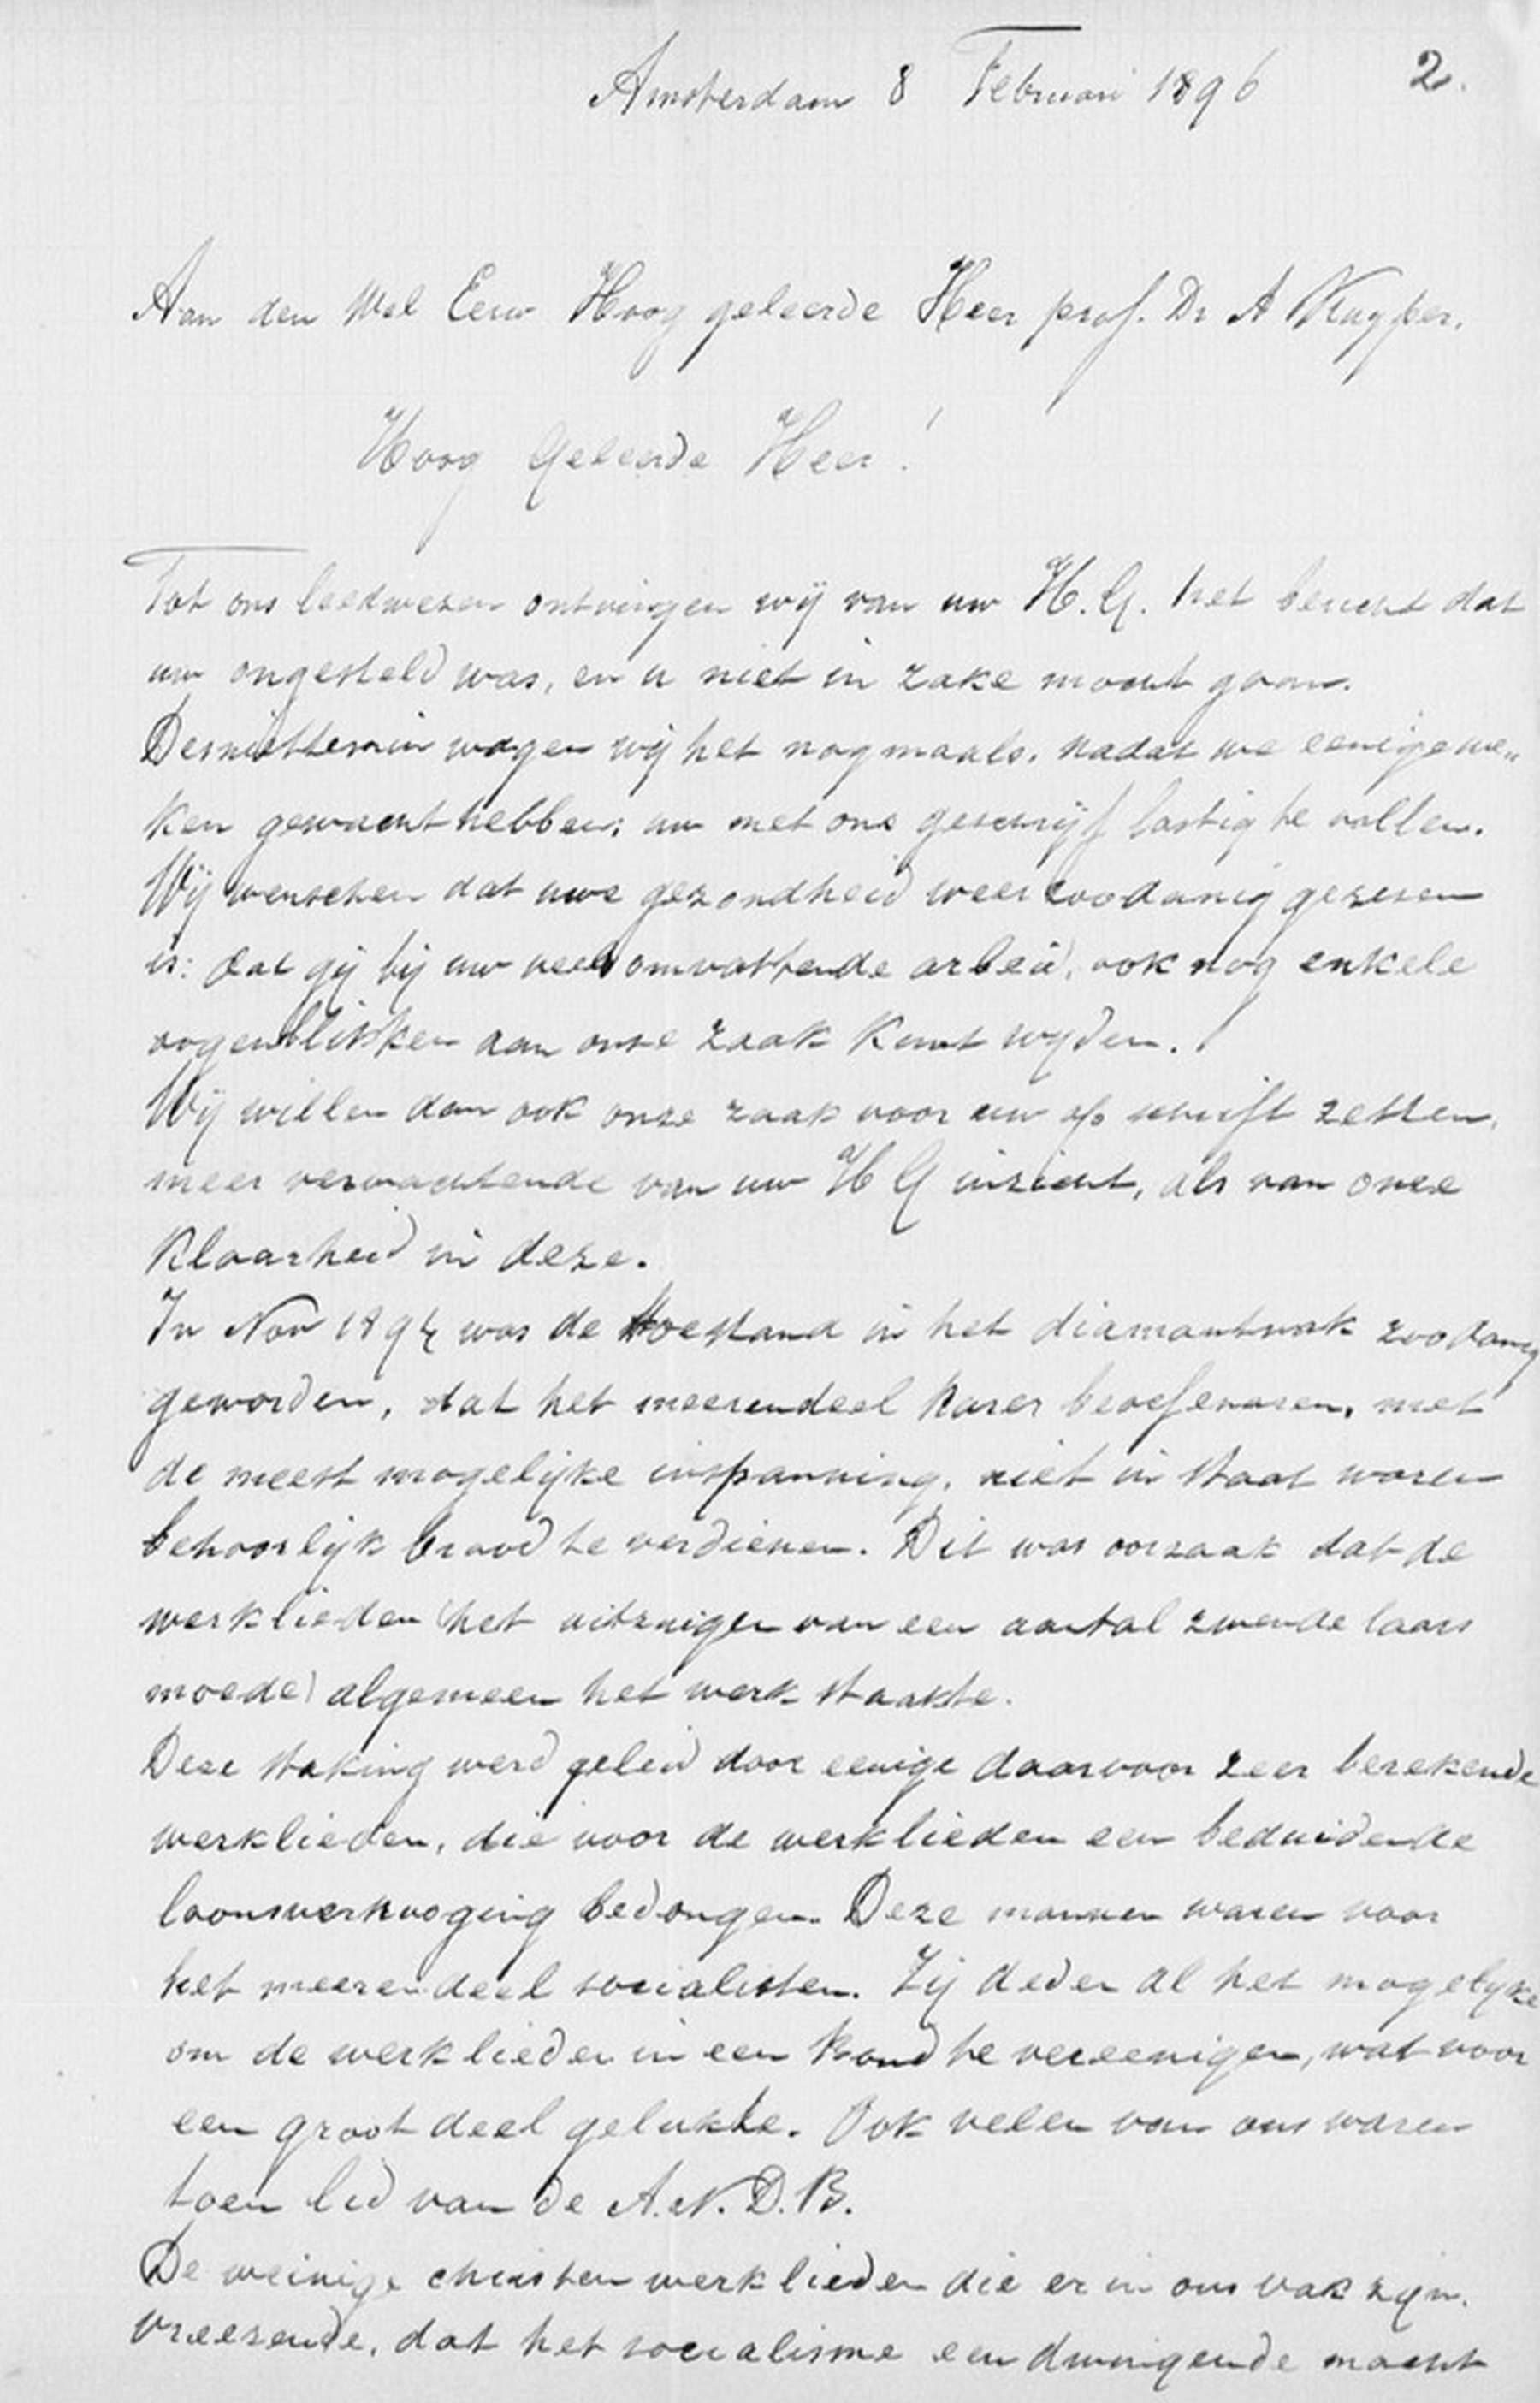 Amsterdam 8 Februari 1896 2.
Aan den Wel Eerw Hoog geleerde Heer prof. Dr A Kuyper.
Hoog Geleerde Heer!
Tot ons leedwezen ontvingen wij van uw H.G. het bericht dat
uw ongesteld was, en u niet in zake mocht gaan.
Desniettemin wagen wij het nogmaals. nadat we eenige we„
ken gewacht hebben; uw met ons geschrijf lastig te vallen.
Wij wenschen dat uwe gezondheid weer zoodanig gerezen
is: dat gij bij uw veelomvattende arbeid, ook nog enkele
oogenblikken aan onze zaak kunt wyden.
Wij willen dan ook onze zaak voor uw op schrift zetten,
meer verwachtende van uw H G inzicht, als van onze
klaarheid in deze.
In Nov 1894 was de toestand in het diamantvak zoodanig
geworden, dat het meerendeel harer beoefenaren, met
de meest mogelijke inspanning, niet in staat waren
behoorlijk brood te verdienen. Dit was oorzaak dat de
werklieden (het uitzuigen van een aantal zwendelaars
moede) algemeen het werk staakte.
Deze staking werd geleid door eenige daarvoor zeer berekende
werklieden, die voor de werklieden een beduidende
loonsverhooging bedongen. Deze mannen waren voor
het meerendeel socialisten. Zij deden al het mogelyke
om de werklieden in een bond te vereenigen, wat voor
een groot deel gelukte. Ook velen van ons waren
toen lid van de A.N.D.B.
De weinige christen werklieden die er in ons vak zijn.
vreezende, dat het socialisme een dwingende macht